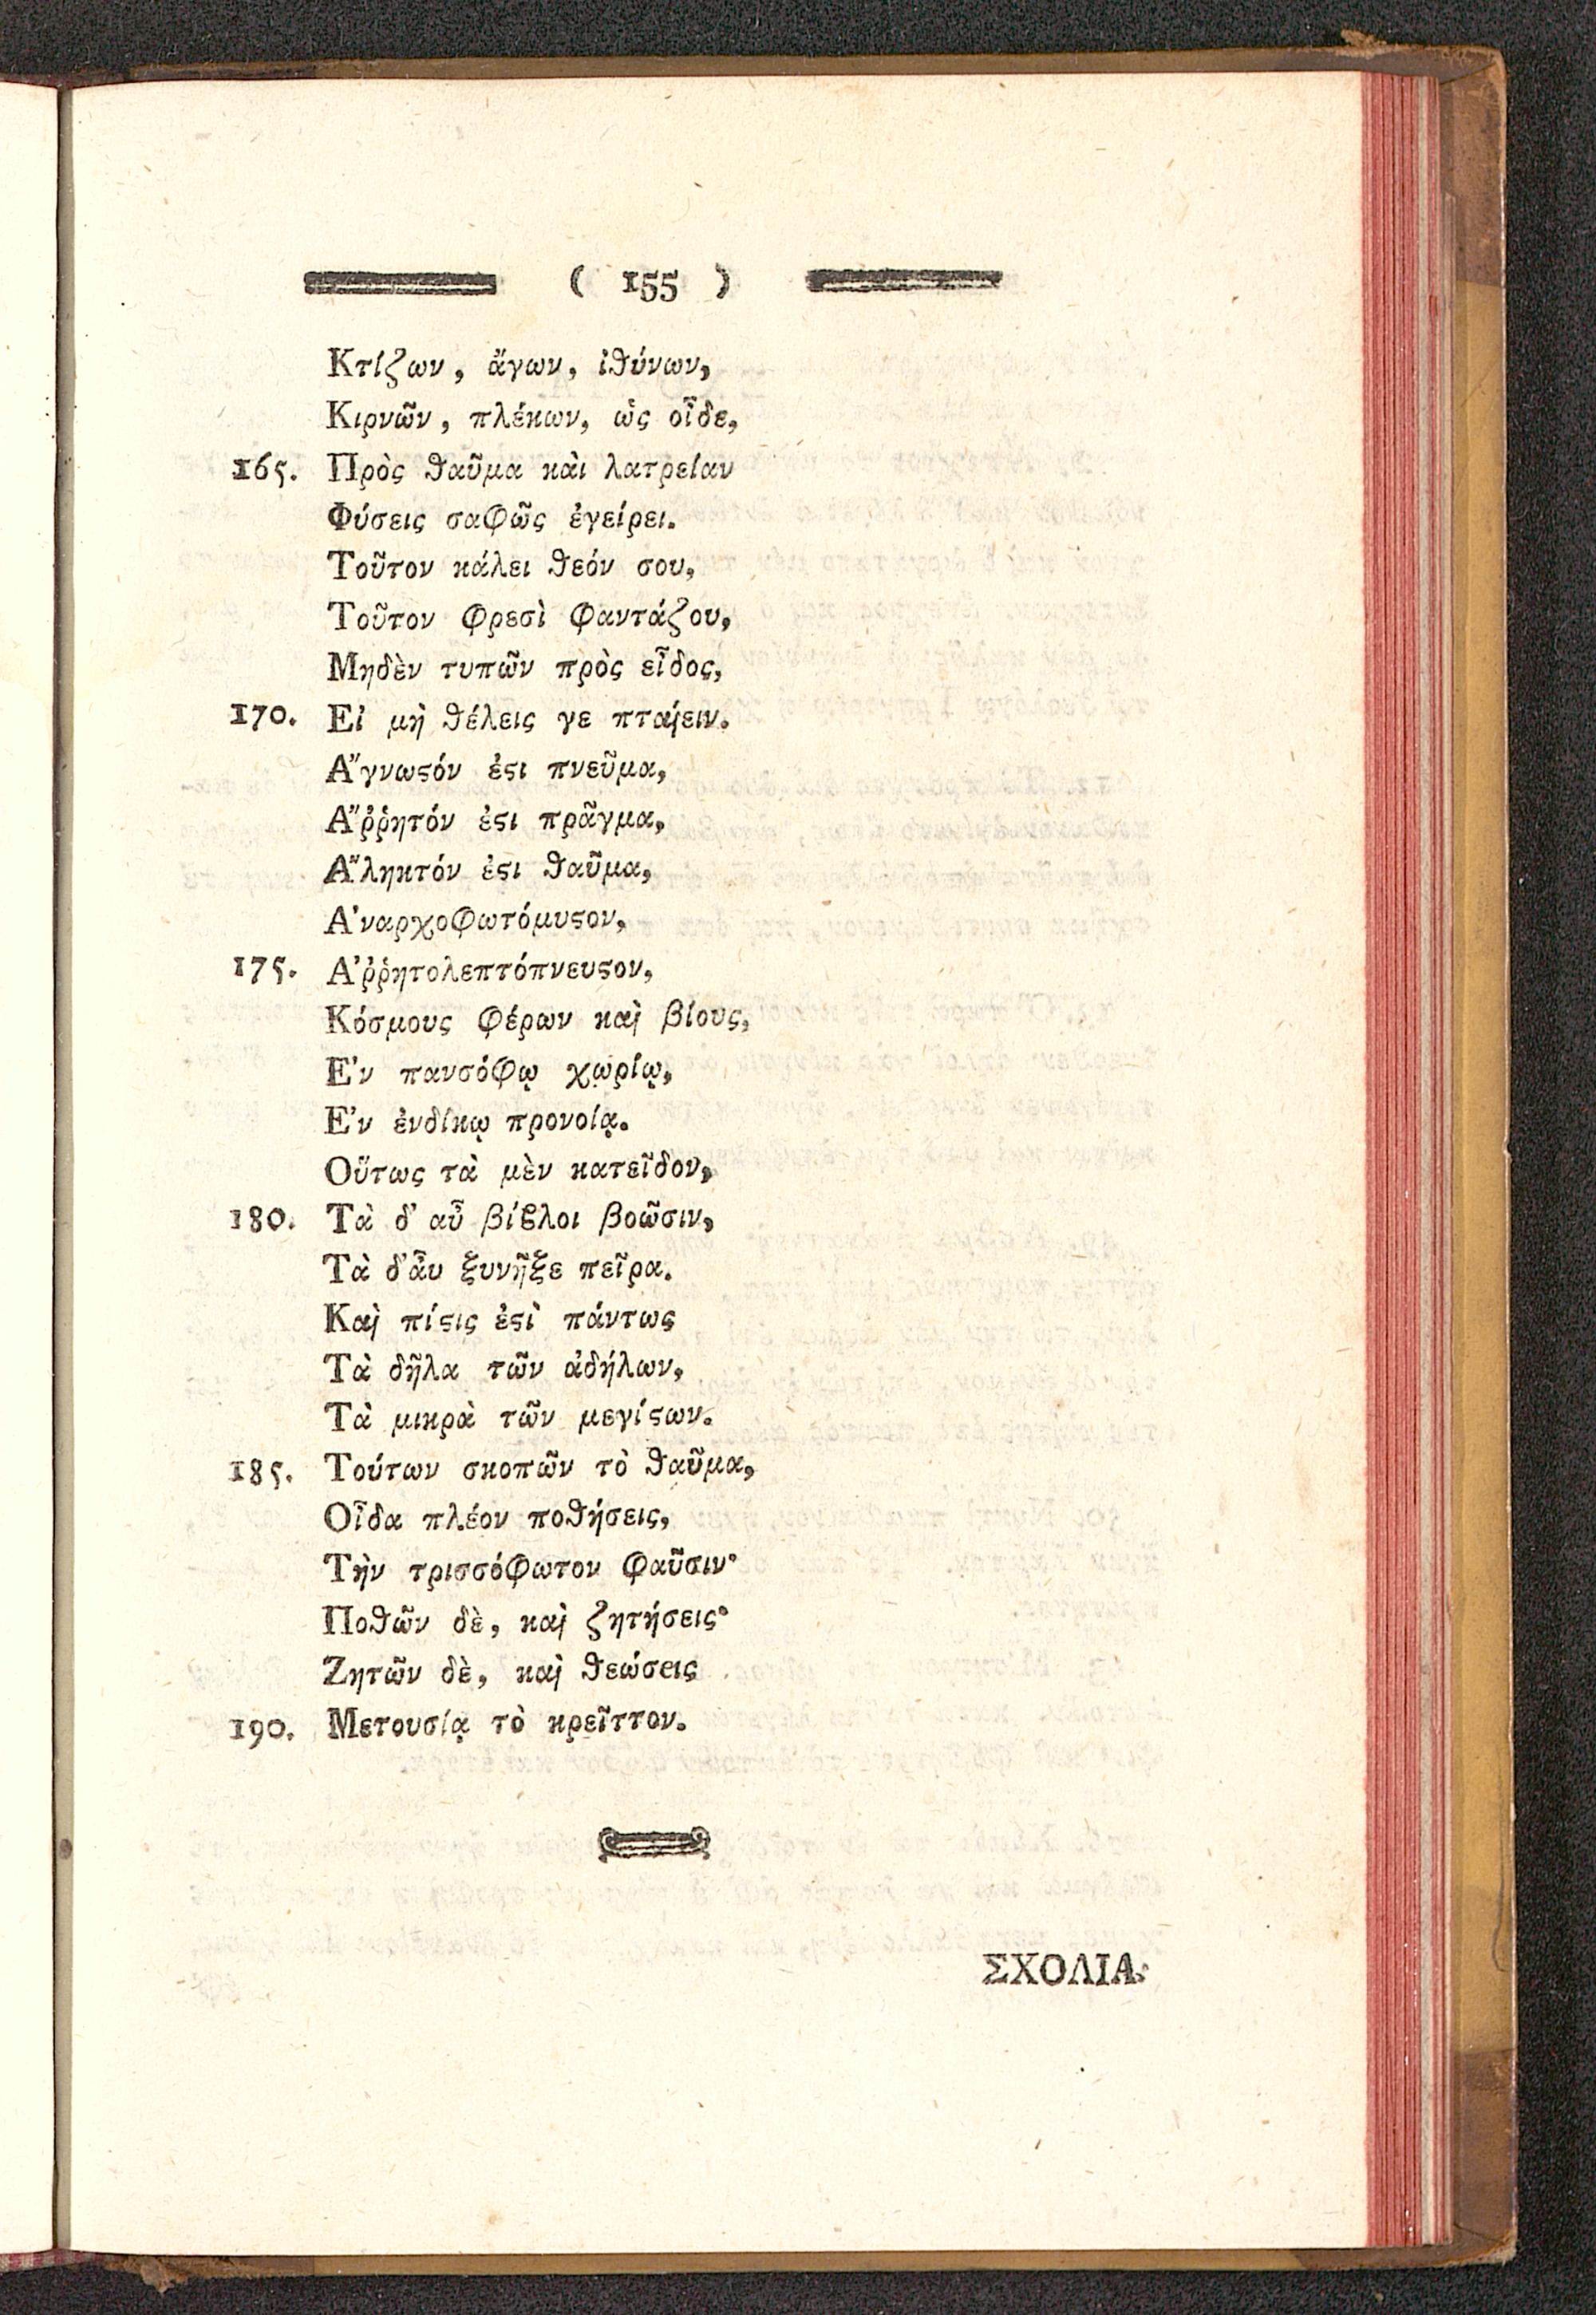 ( 155 )
Κτίζων, ἄγων, ἰθύνων,
Κιρνῶν, πλέκων, ὡς οἶδε,
165. Πρὸς θαῦμα κὰι λατρείαν
Φύσεις σαφῶς ἐγείρει.
Τοῦτον κάλει θεόν σου,
Τοῦτον φρεσὶ φαντάζου,
Μηδὲν τυπῶν πρὸς εἶδος,
170. Εἰ μὴ θέλεις γε πταίειν.
Α῎γνωϛόν ἐϛι πνεῦμα,
Α῎ῤῥητόν ἐϛι πρᾶγμα,
Α῎ληκτόν ἐϛι θαῦμα,
Α᾿ναρχοφωτόμυϛον,
175. Α᾿ῤῥητολεπτόπνευϛον,
Κόσμους φέρων καὶ βίους,
Ε᾿ν πανσόφῳ χωρίῳ,
Ε᾿ν ἐνδίκῳ προνοίᾳ.
Οὕτως τὰ μὲν κατεῖδον,
180. Τὰ δ᾽ αὖ βίϐλοι βοῶσιν,
Τὰ δ᾽ἆυ ξυνῆξε πεῖρα.
Καὶ πίϛις ἐϛὶ πάντως
Τὰ δῆλα τῶν ἀδήλων,
Τὰ μικρὰ τῶν μεγίϛων.
185. Τούτων σκοπῶν τὸ θαῦμα,
Οἶδα πλέον ποθήσεις,
Τὴν τρισσόφωτον φαῦσιν·
Ποθῶν δὲ, καὶ ζητήσεις·
Ζητῶν δὲ, καὶ θεώσεις
190. Μετουσίᾳ τὸ κρεῖττον.
ΣΧΟΛΙΑ.